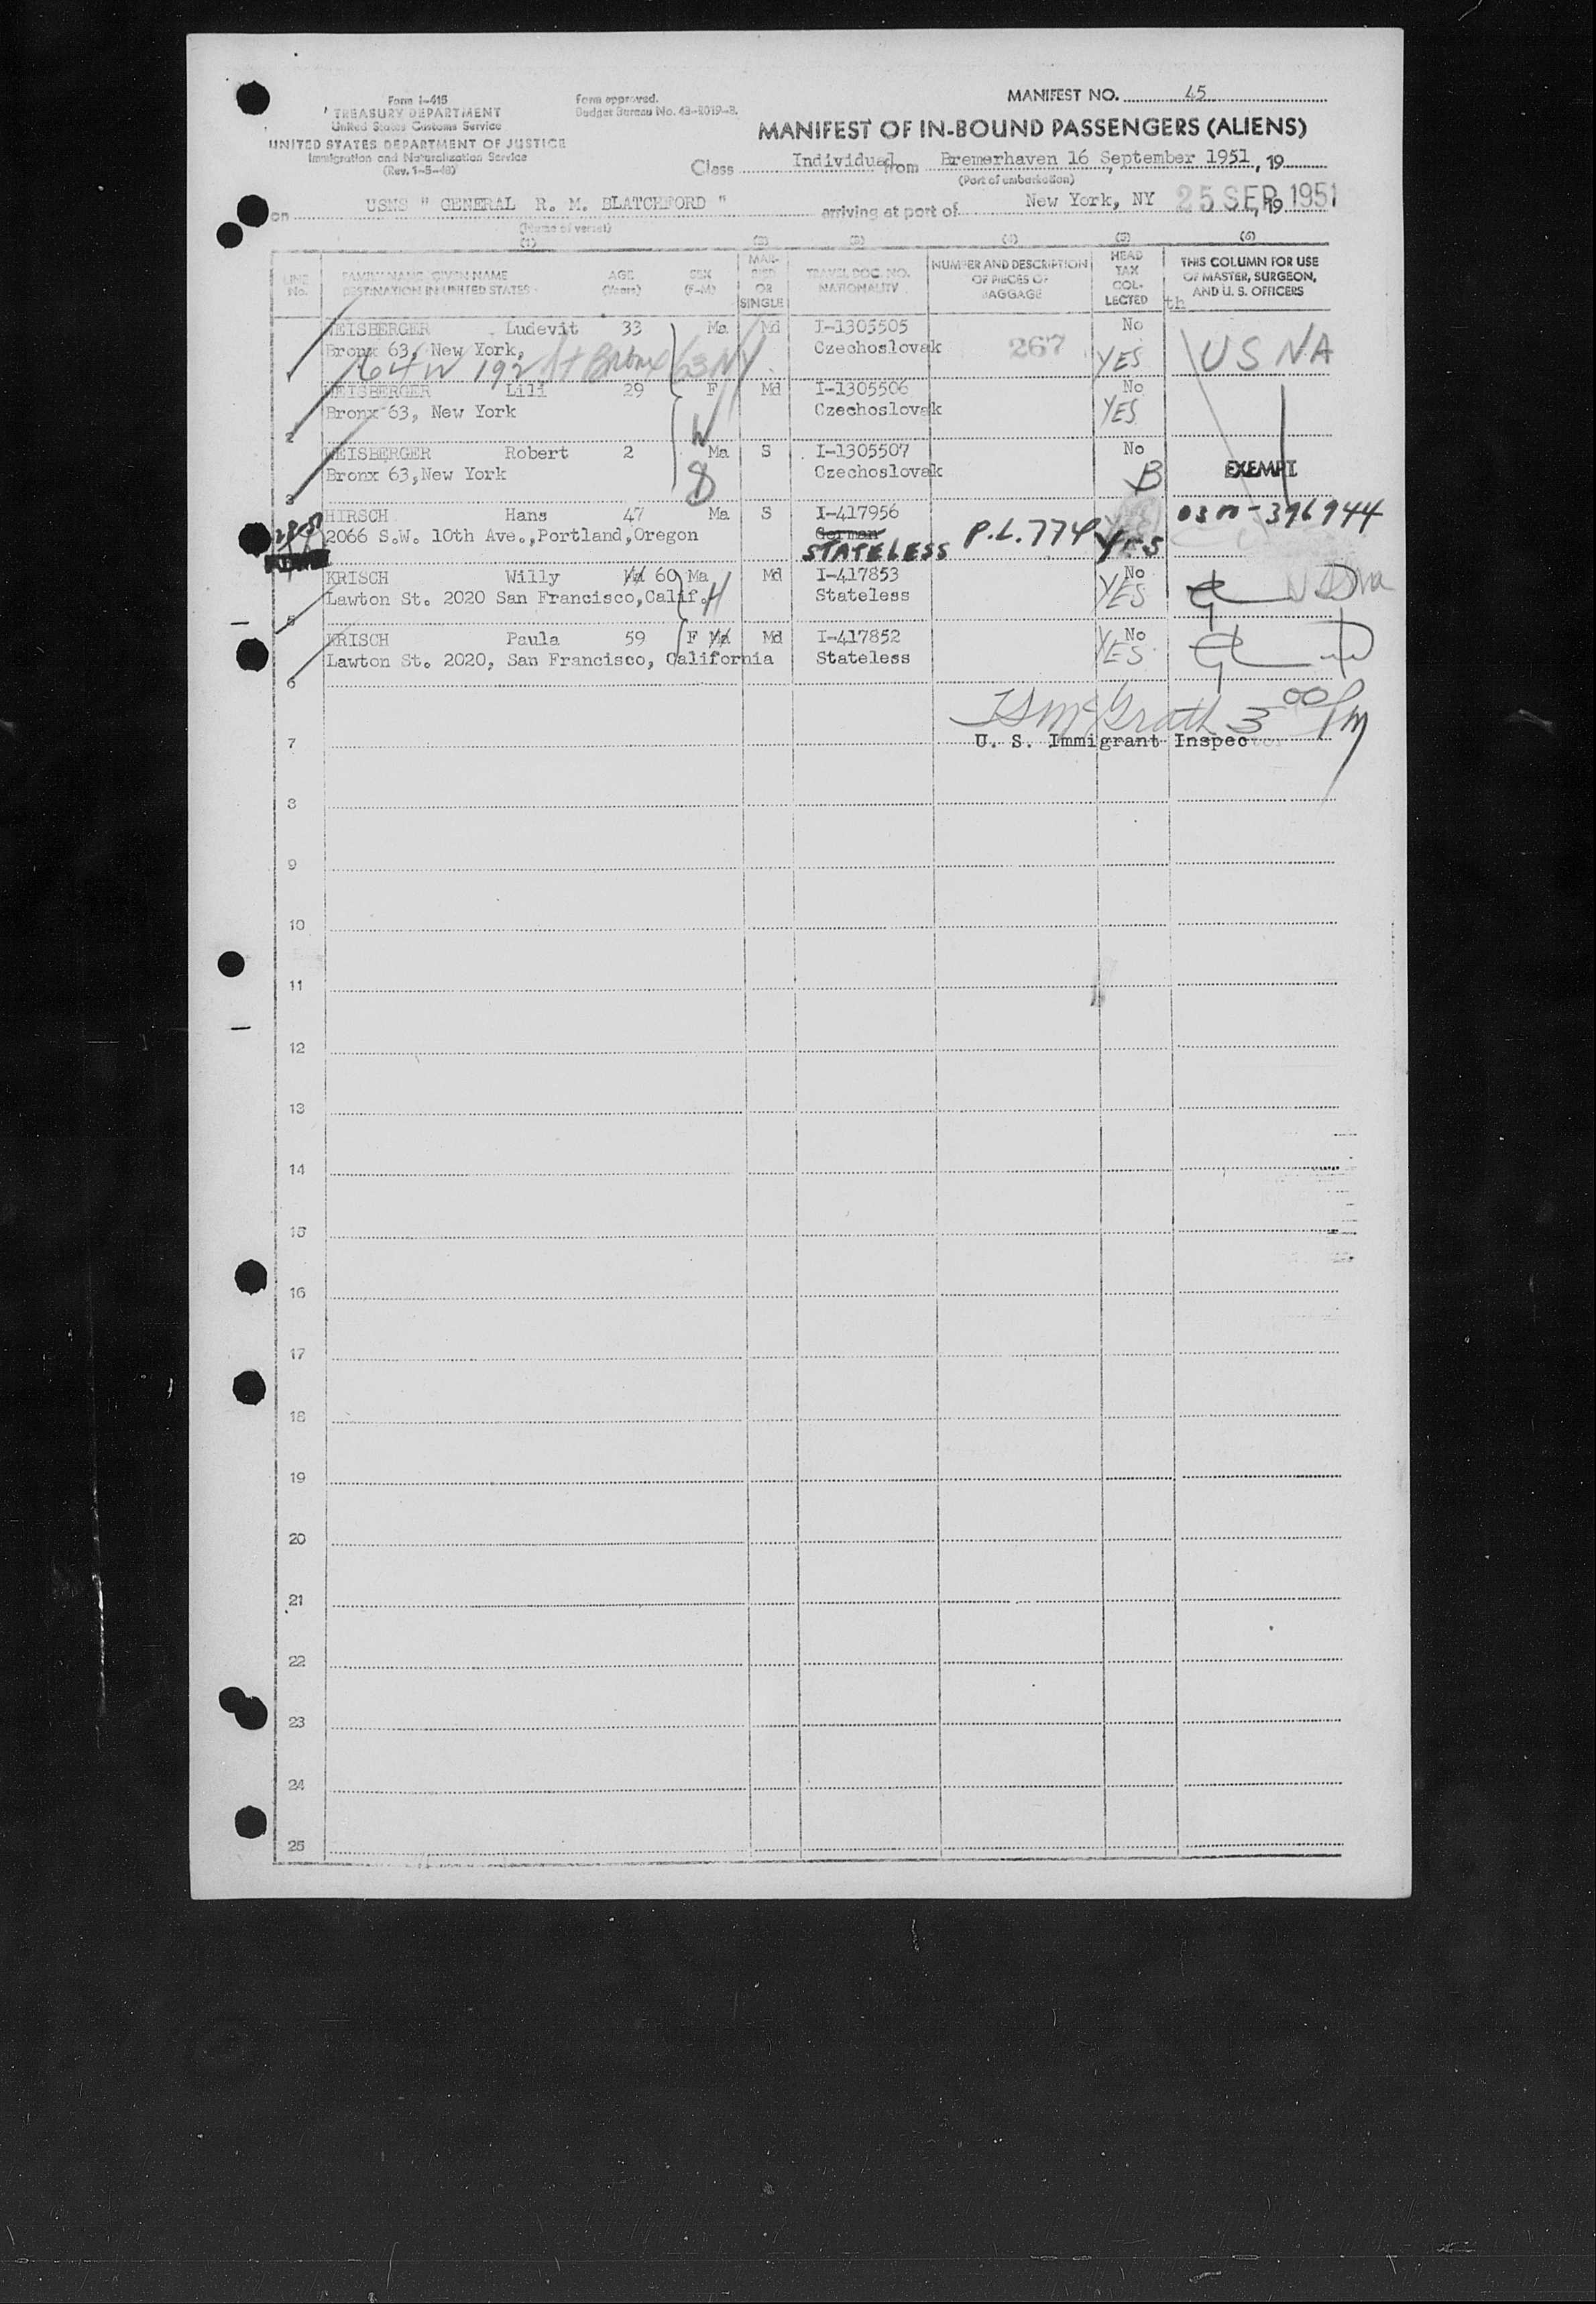 Form I-415
TREASURY DEPARTMENT
United States Customs Service
UNITED STATES DEPARTMENT OF JUSTICE
Immigration and Naturalization Service
(Rev. 1-5-48)
Form approved.
Budget Bureau No. 43-R019-3.
MANIFEST NO. 45
MANIFEST OF IN-BOUND PASSENGERS (ALIENS)
Class Individual from Bremerhaven 16 September 1951, 19
(Port of embarkation)
on USNS " GENERAL R. M. BLATCHFORD " arriving at port of New York, NY 25 SEP 1951, 19
(Name of vessel)
(1) (2) (3) (4) (5) (6)
LINE No. FAMILY NAME, GIVEN NAME DESTINATION IN UNITED STATES AGE (Years) SEX (F-M) MAR-RIED OR SINGLE TRAVEL DOC. NO. NATIONALITY NUMBER AND DESCRIPTION OF PIECES OF BAGGAGE HEAD TAX COL-LECTED THIS COLUMN FOR USE OF MASTER, SURGEON, AND U. S. OFFICERS
th
WEISBERGER Ludevit 33 Ma Md I-1305505 No
Bronx 63, New York, Czechoslovak 267 YES US NA
1 64 W 192 St Bronx 63 NY
WEISBERGER Lili 29 F Md I-1305506 No
Bronx 63, New York Czechoslovak YES
2 W
WEISBERGER Robert 2 Ma S I-1305507 No
Bronx 63, New York Czechoslovak B EXEMPT
3
HIRSCH Hans 47 Ma S I-417956 0300-396944
2066 S.W. 10th Ave., Portland, Oregon German P.L. 774 YES
STATELESS
KRISCH Willy 60 Ma Md I-417853 No
Lawton St. 2020 San Francisco, Calif. H Stateless YES
5
KRISCH Paula 59 F Ma Md I-417852 No
Lawton St. 2020, San Francisco, California Stateless YES
6
McGrath 3 00 Pm
7 U. S. Immigrant Inspector
8
9
10
11
12
13
14
15
16
17
18
19
20
21
22
23
24
25